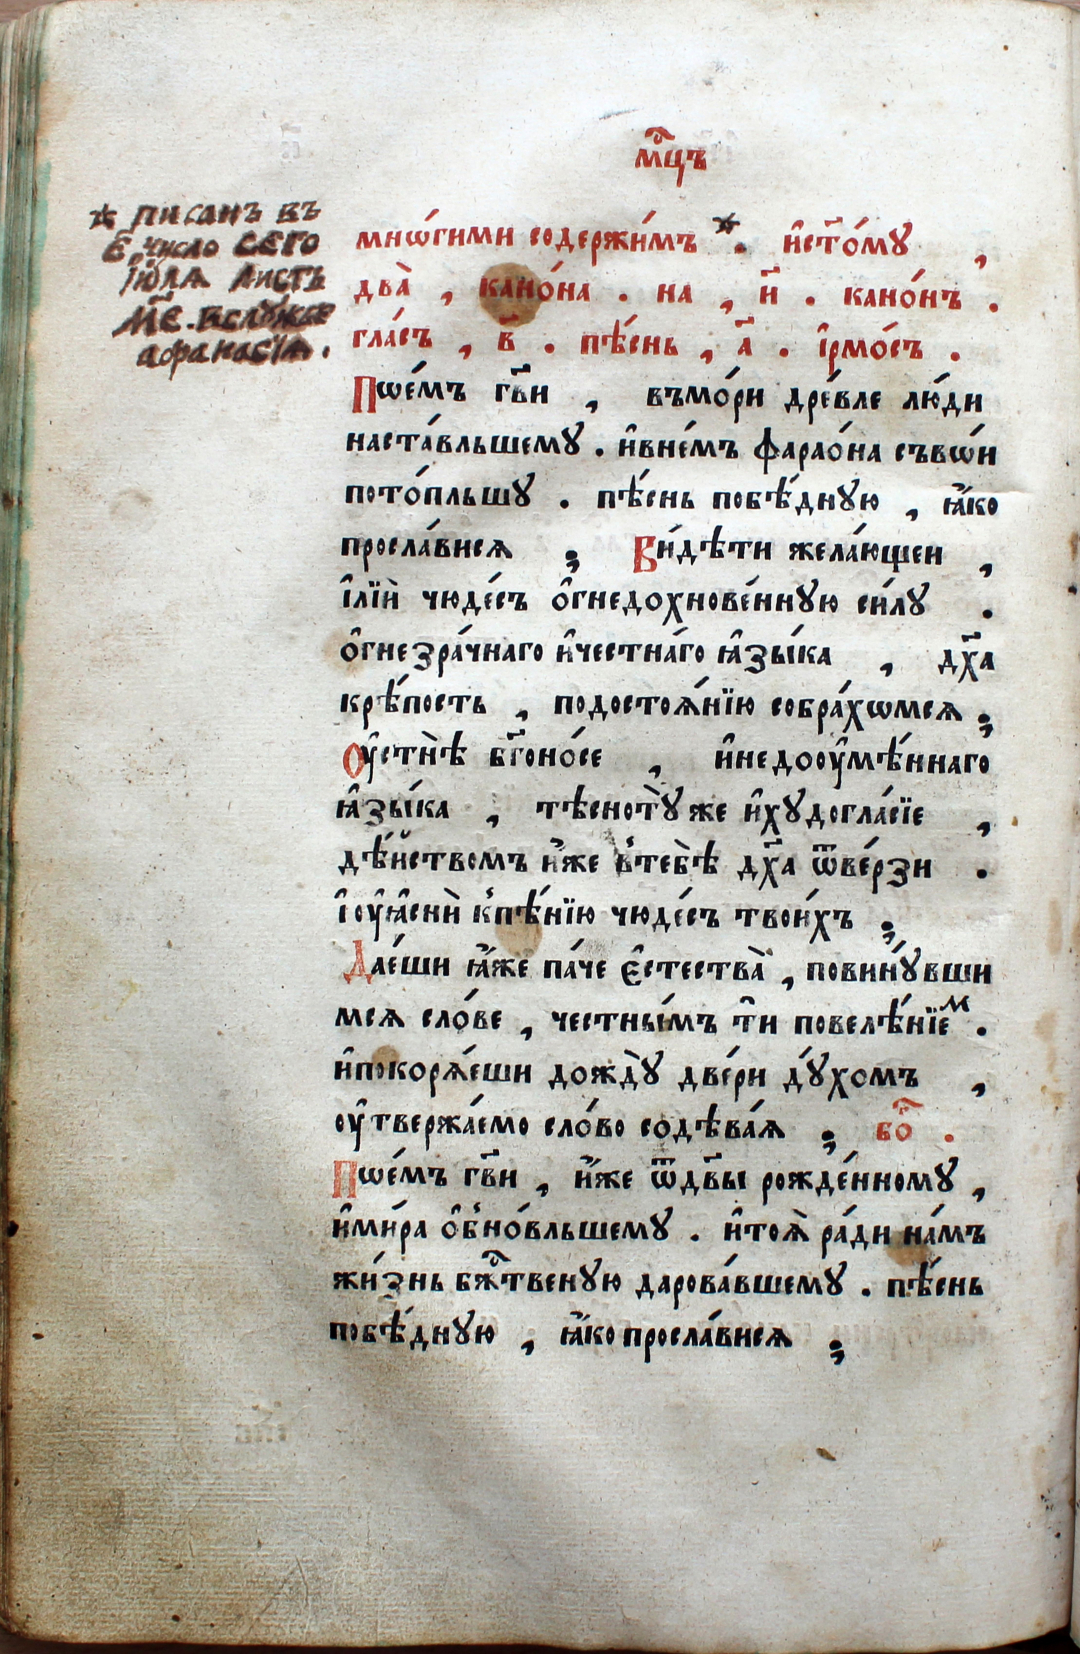 мⷭ҇цъ
* писанъ въ
є҃, число сего
іюлѧ листъ
м҃є. вслꙋжбе
афанасїѧ.
мнѡ́гими содержи́мъ * . и҆сто́мꙋ ,
два̀ , кано́на . на , и҃ . кано́нъ .
гла́съ , в҃ . пѣ́снь , а҃ . і҆рмо́съ .
Пѡе́мъ гв҃и , въмо́ри дре́вле лю́ди
наста́вльшемꙋ . и҆вне́мъ фарао́на съвѡ́и
пото́пльшꙋ . пѣ́снь побѣ́днꙋю , ꙗ҆́ко
просла́висѧ ; Ви́дѣти жела́ющеи ,
і҆лїѝ чюде́съ ѻ҆гнедохнове́ннꙋю си́лꙋ .
ѻ҆гнезра́чнаго и҆честна́го ꙗ҆зы́ка , дх҃а
крѣ́пость , подостоѧ́нїю собра́хѡмсѧ ;
Оу҆стнѣ̀ бг҃оно́се , и҆недооу҆мѣ́ннаго
ꙗ҆зы́ка , тѣснотꙋ̀же и҆хꙋдогла́сїе ,
дѣ́йствомъ и҆́же в̾тебѣ̀ дх҃а ѿве́рзи .
і҆оу҆ꙗ҆снѝ к̾пѣ́нїю чюде́съ твои́хъ ;
Дае́ши ꙗ҆́же па́че є҆стества̀ , повинꙋ́вши
мсѧ сло́ве , честны́мъ ти҆ повелѣ́нїемⷨ .
и҆покорѧ́еши дождꙋ̀ две́ри дꙋ́хомъ ,
оу҆твержа́емо сло́во содѣва́ѧ ; боⷢ҇ .
Пѡе́мъ гв҃и , и҆́же ѿдв҃ы рожде́нномꙋ ,
и҆ми́ра ѻ҆б̾но́вльшемꙋ . и҆тоѧ̀ ра́ди на́мъ
жи́знь бжⷭ҇твенꙋю дарова́вшемꙋ . пѣ́снь
побѣ́днꙋю , ꙗ҆́ко просла́висѧ ;